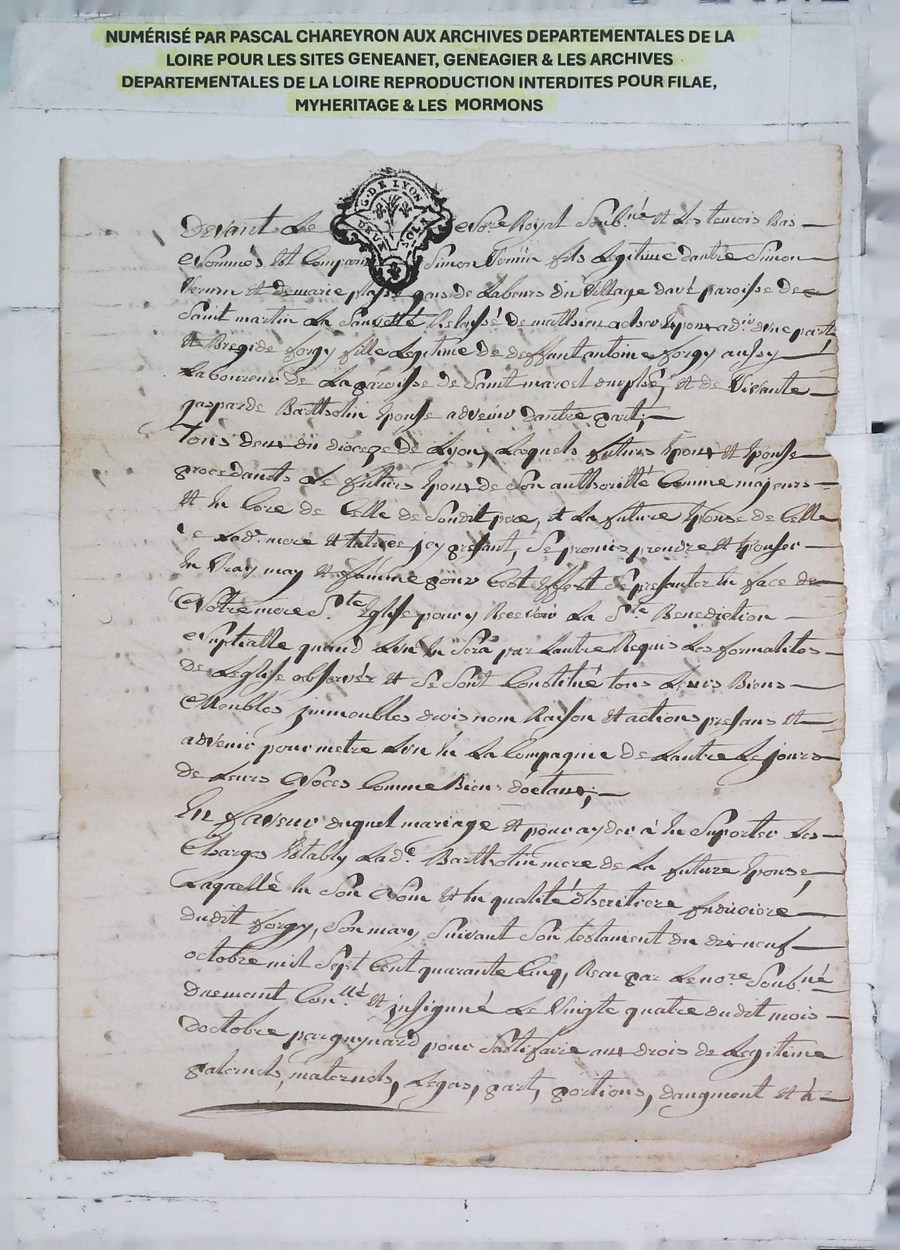 NUMÉRISÉ PAR PASCAL CHAREYRON AUX ARCHIVES DEPARTEMENTALES DE LA
LOIRE POUR LES SITES GENEANET, GENEAGIER & LES ARCHIVES
DEPARTEMENTALES DE LA LOIRE REPRODUCTION INTERDITES POUR FILAE,
MYHERITAGE & LES MORMONS
G. DE LYON
DEUX SOLS
Devant Le Nore Royal Soubné Et Les temois Bas
Nommés Simon Vernin fils Legitime dautre Simon
Vernin Et de marie gens de Labeurs du Village davé paroisse de
Saint martin La Sauveté Relaissé de mathieu Epoux adir dune part
Et Bregide forgy fille Legitime de deffunt antoine forgy aussy
Laboureur de La paroisse de Saint marcel durphé, et de Vivante
gasparde Bartholin Epouse advenir dautre part,
Tous deux du diocese de Lyon, Lesquels futurs Epoux Et Epouse
procedants Le futurs Epoux de Son authorité Comme majeurs
Et En Core de Celle de Soudit pere, et La future Epouse de Celle
de Lade mere Et tutrice jcy presant, Se promis prendre et Epouser
En Vray mary Et famme pour Cest Effert Se presanter En face de
Notre mere Ste Eglise pour y Recevoir La Ste Benediction
Nuptialle quand Lun En Sera par Lautre Requis Les formalites
de Leglise observés Et Se Sont Constitué tous Leurs Biens
Meubles Immeubles drois nom Raison Et actions presans Et
advenir pour metre Lun En La Compagnie de Lautre Le jours
de Leurs Noces Comme Biens doctaux,
En faveur duquel mariage Et pour ayder à En Suporter Les
Charges Estably Lade Bartholin mere de La future Epouse,
Laquelle En Son Nom Et En qualité dheritiere fiduciere
dudit forgy, Son mary, Suivant Son testament du dix neuf
octobre mil Sept Cent quarante Cinq, Reçu par Le nore Soubné
Duement Conllé Et jnsignué Le Vingte quatre dudit mois
doctobre par pour Satisfaire aux drois de Legitime
paternels, maternels, Legas, part, portions, daugment et à